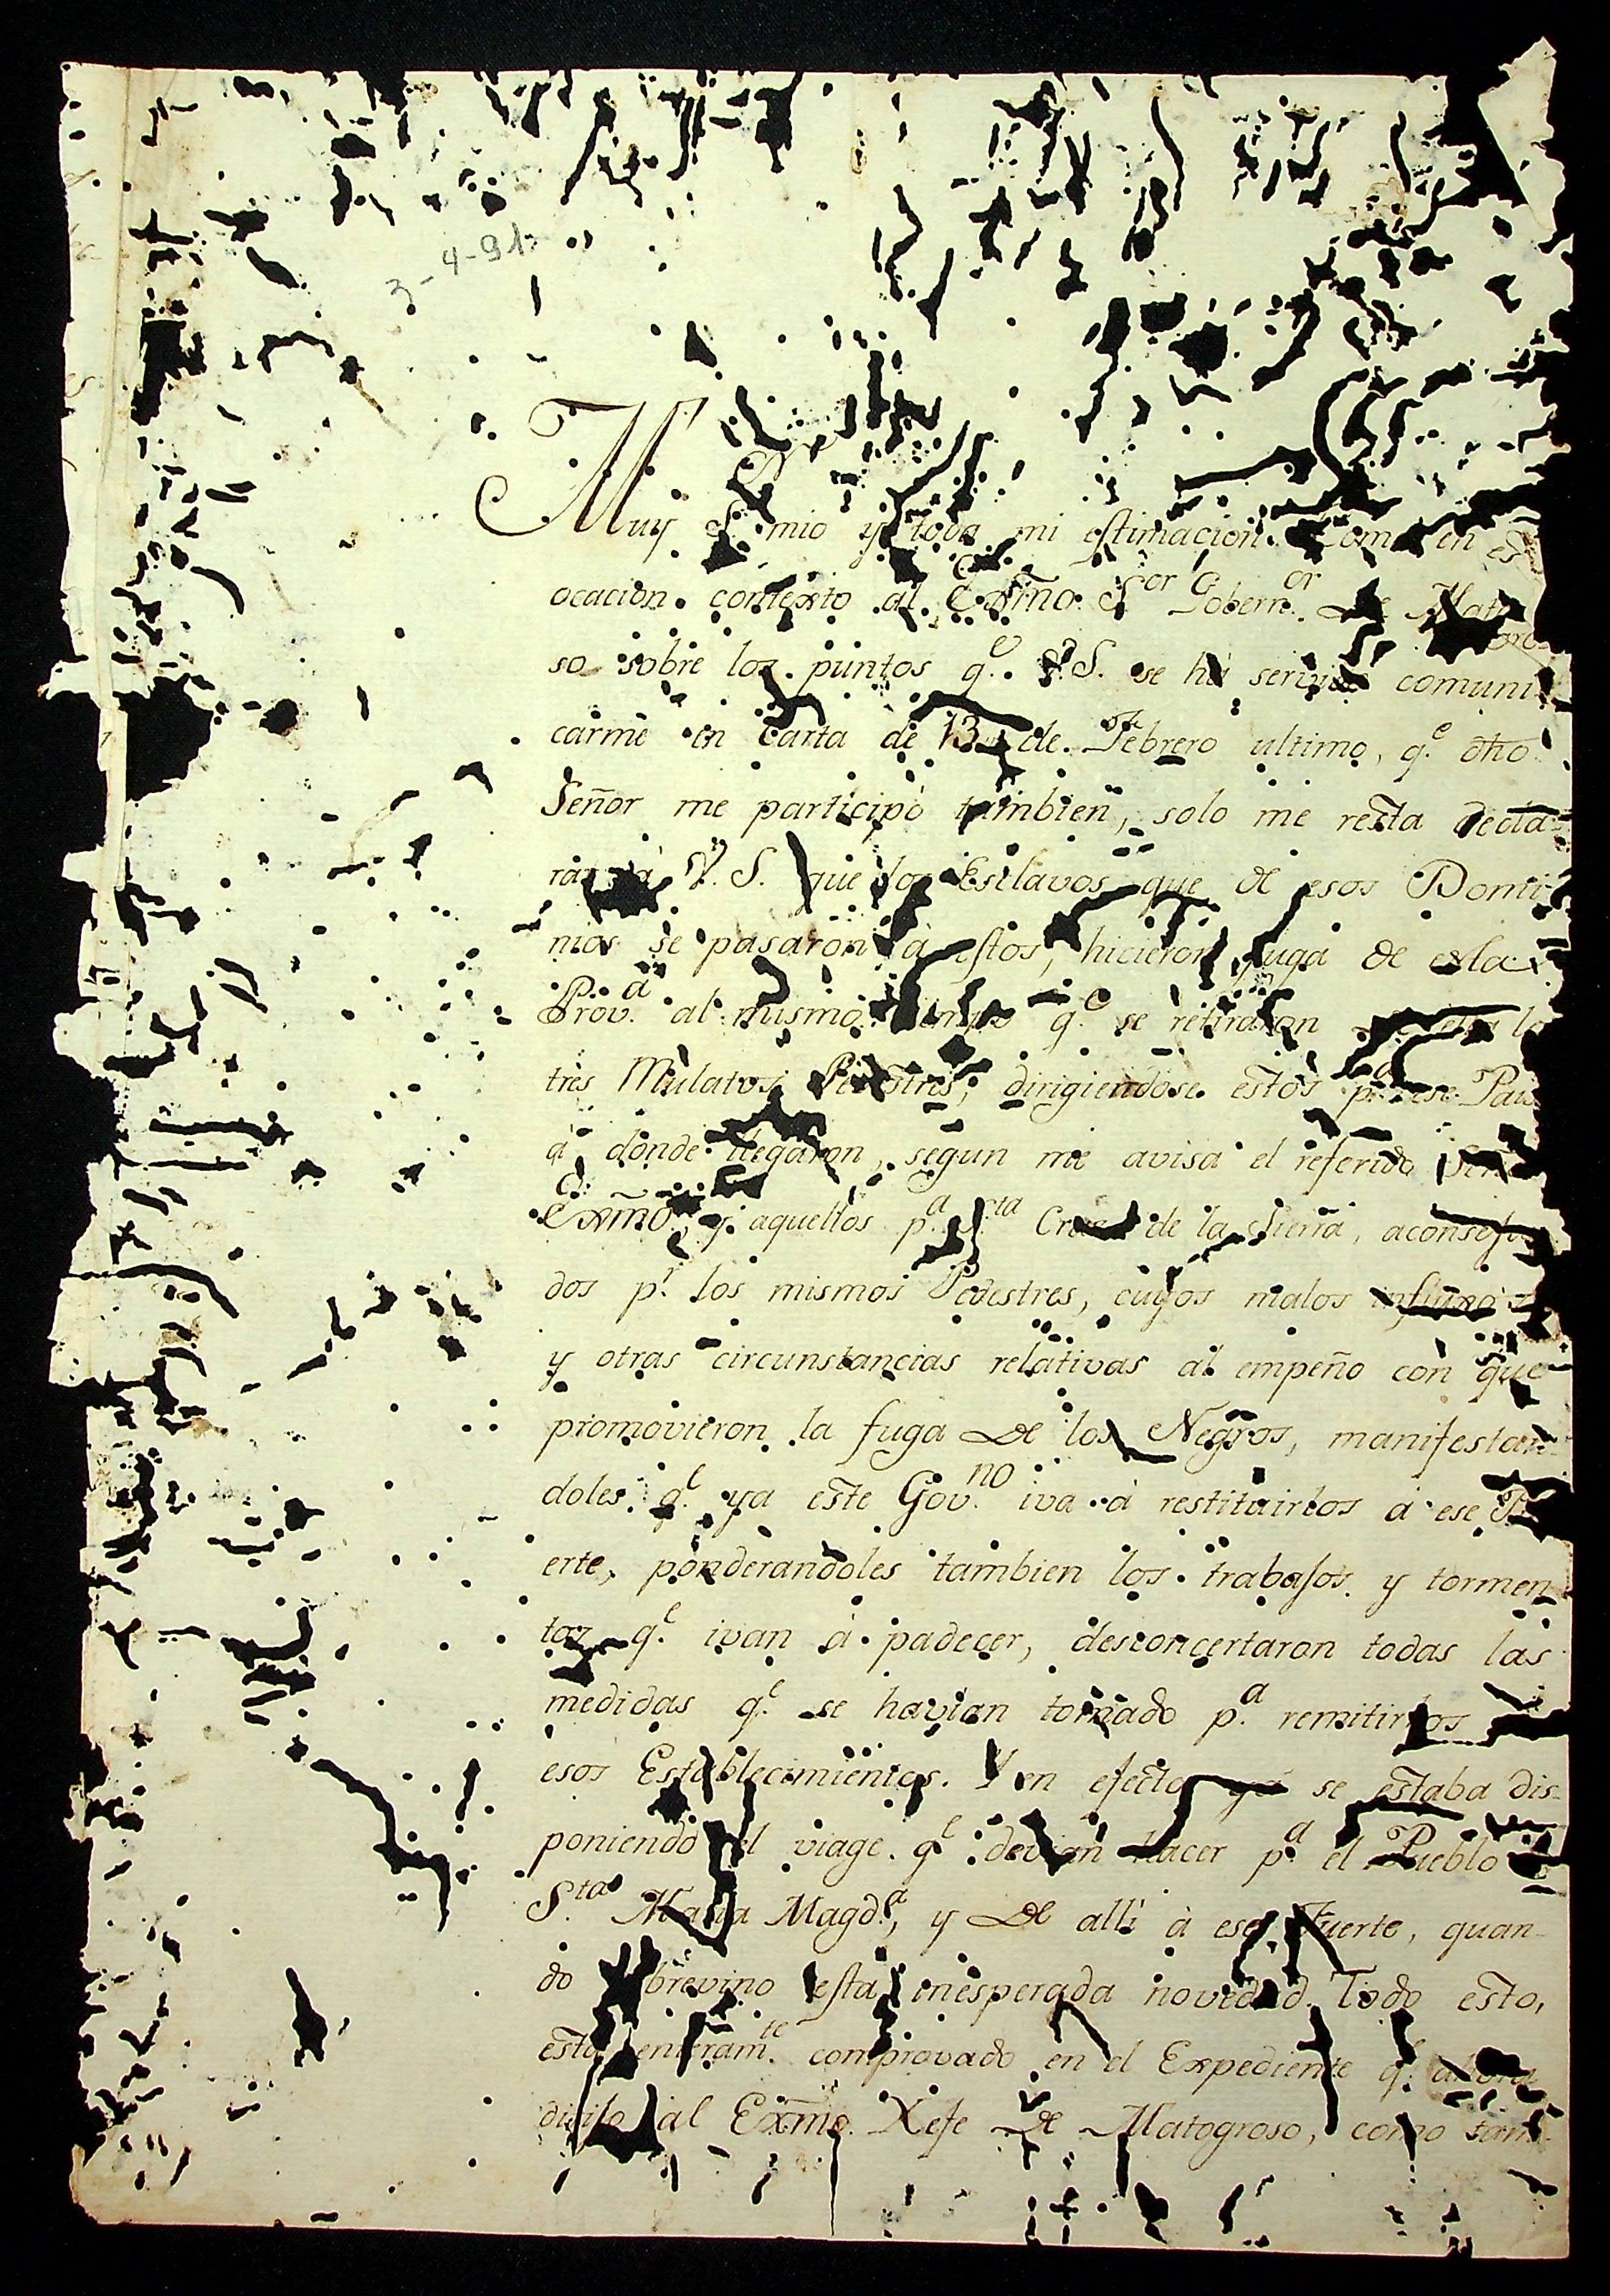 3-4-91
Muy S.or mio y toda mi estimacion. Como en est
ocacion contexto al Exm̃o. S.or Gobern.or De Mato
gro
so sobre los puntos q.e V.S. se há servido comuni
carme en carta de 13 de Febrero ultimo, q.e dho
Señor me participó tambien, solo me resta decla
rar à V. S. que los Esclavos que de esos Domi
nios se pasaron à estos, hicieron fuga de esta
Prov.a al mismo tiempo q.e se retiraron
tres Mulatos Pedestres, dirigiendose estos p.a ese Pais
à donde llegaron, segun me avisa el referido Señ
Exm̃o, y aquellos p.a S.ta Cruz de la Sierra, aconseja
dos p.r los mismos Pedestres, cuyos malos
y otras circunstancias relativas al empeño con que
promovieron la fuga De los Negros, manifestan
doles q.e ya este Gov.no iva à restituirlos à ese Fu
erte, ponderandoles tambien los trabajos y tormen
tos q.e ivan à padecer, desconcertaron todas las
medidas q.e se havian tomado p.a remitirlos
esos Establecimientos. Y en efecto ya se estaba dis-
poniendo el viage q.e devian hacer p.a el Pueblo
S.ta Maria Magd.a, y De alli à ese Fuerte, quan-
do sobrevino esta inesperada novedad. Todo esto,
està enteram.te comprovado en el Expediente q.e ahora
dirijo al Exm̃o. Xefe De Matogroso, como tam-